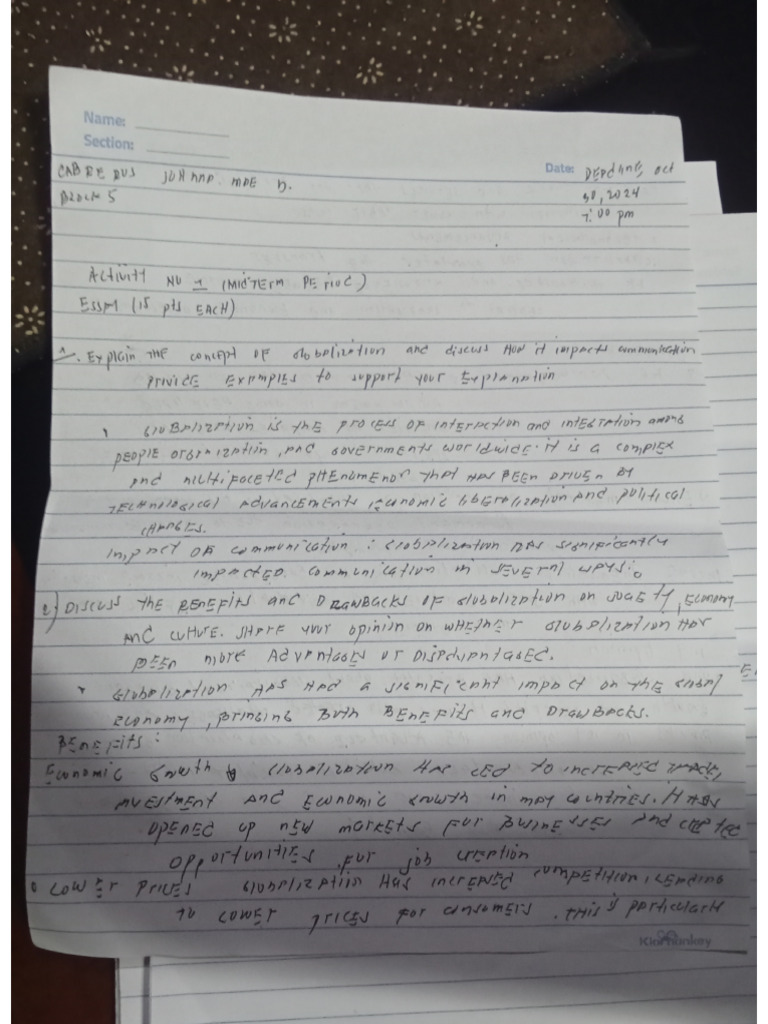 Name:
Section:
Date: DEADLINE, Oct
30, 2024
7:00 pm
Block 5
Activity No 1 (MidTerm Period)
Essay (15 pts EACH)
1. Explain THE concept OF Globalization and discuss How it impacts communication
Provide Examples to support your Explanation
Globalization is the process of interaction and integration among
people organization, and governments worldwide. it is a complex
and multifaceted phenomenon that has been driven by
Technological advancements, economic liberalization and political
changes.
Impact of communication : Globalization has significantly
impacted communication in several ways:
2) Discuss the Benefits and Drawbacks of Globalization on Society, Economy
and culture. Share your opinion on whether Globalization has
been more Advantages or Disadvantaged.
Globalization has had a significant impact on the Global
economy, bringing both Benefits and Drawbacks.
Benefits:
Economic Growth Globalization has led to increased trade,
investment and Economic Growth in many countries. It has
opened up new markets for businesses and created
opportunities for job creation
Lower prices Globalization has increased competition, leading
to Lower prices for consumers. This is particularly